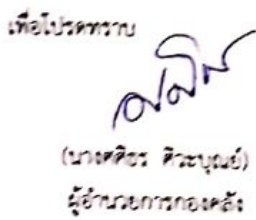 เพื่อโปรดทราบ
(นางศศิธร ศิวะบุณย์)
ผู้อำนวยการกองคลัง